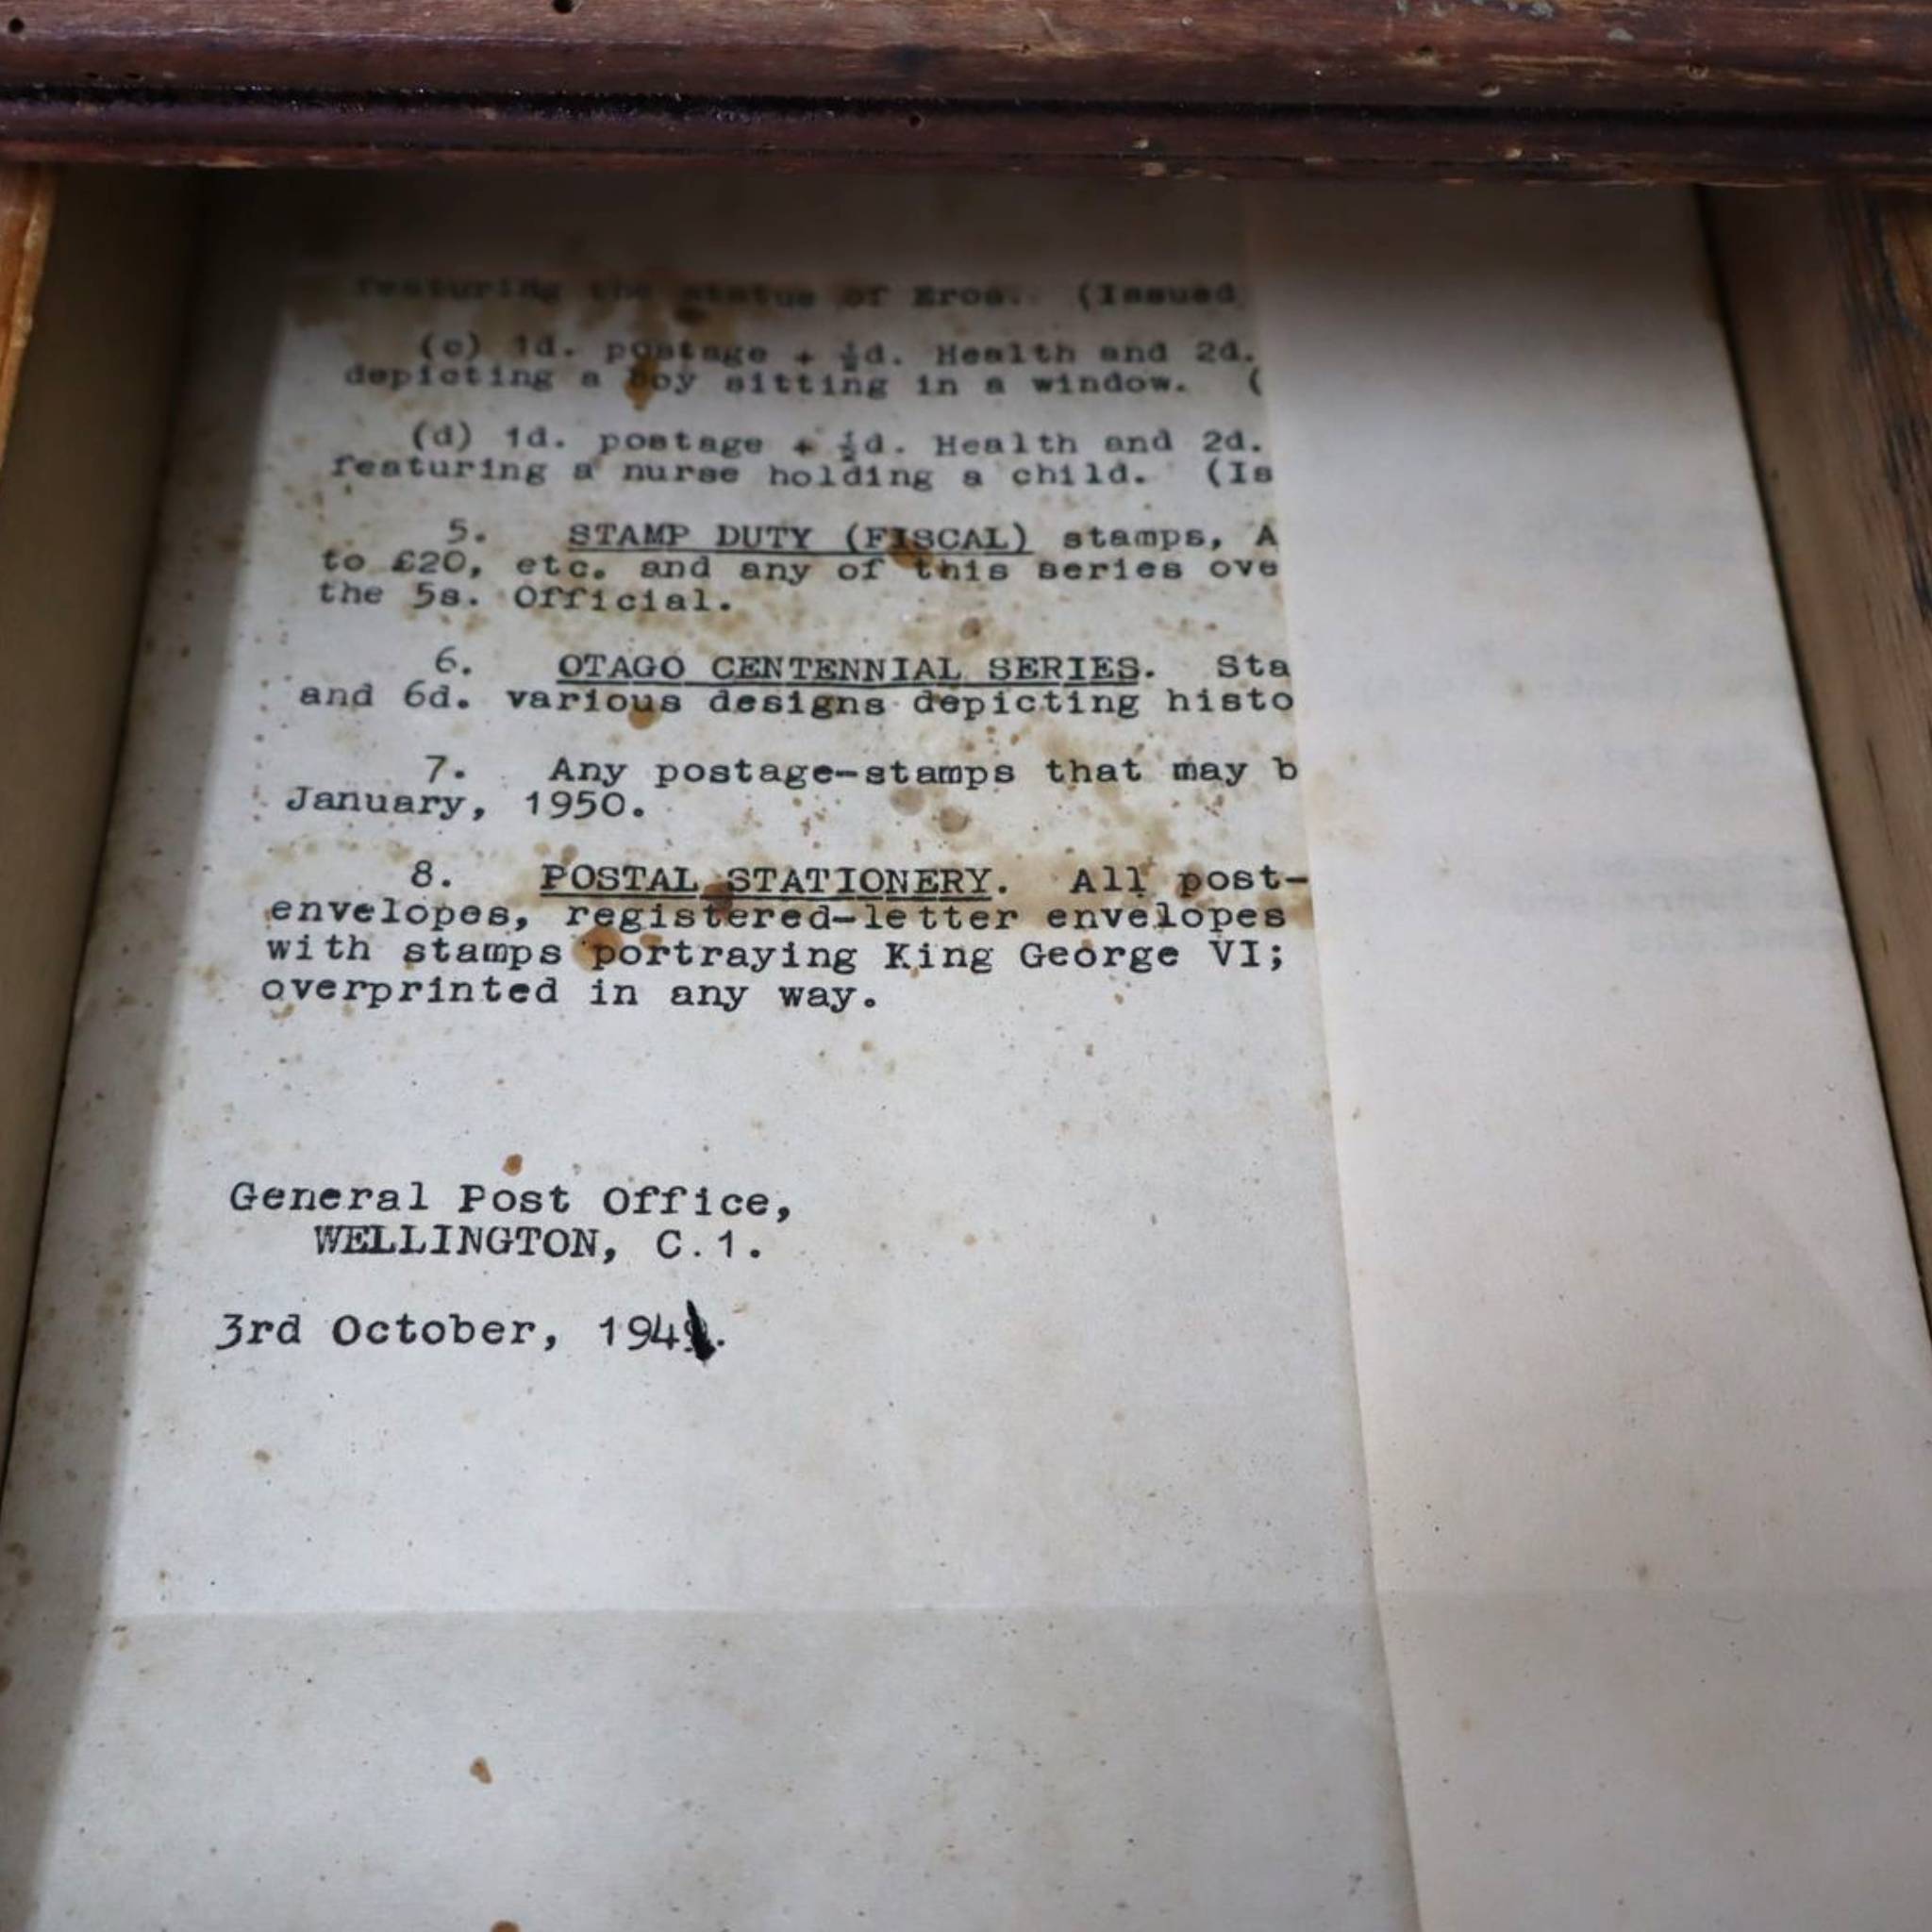 featuring the statue of Eros. (Issued
(c) 1d. postage + ½d. Health and 2d.
depicting a boy sitting in a window. (
(d) 1d. postage + ½d. Health and 2d.
featuring a nurse holding a child. (Is
5. STAMP DUTY (FISCAL) stamps, A
to £20, etc. and any of this series ove
the 5s. Official.
6. OTAGO CENTENNIAL SERIES. Sta
and 6d. various designs depicting histo
7. Any postage-stamps that may b
January, 1950.
8. POSTAL STATIONERY. All post-
envelopes, registered-letter envelopes
with stamps portraying King George VI;
overprinted in any way.
General Post Office,
WELLINGTON, C.1.
3rd October, 194